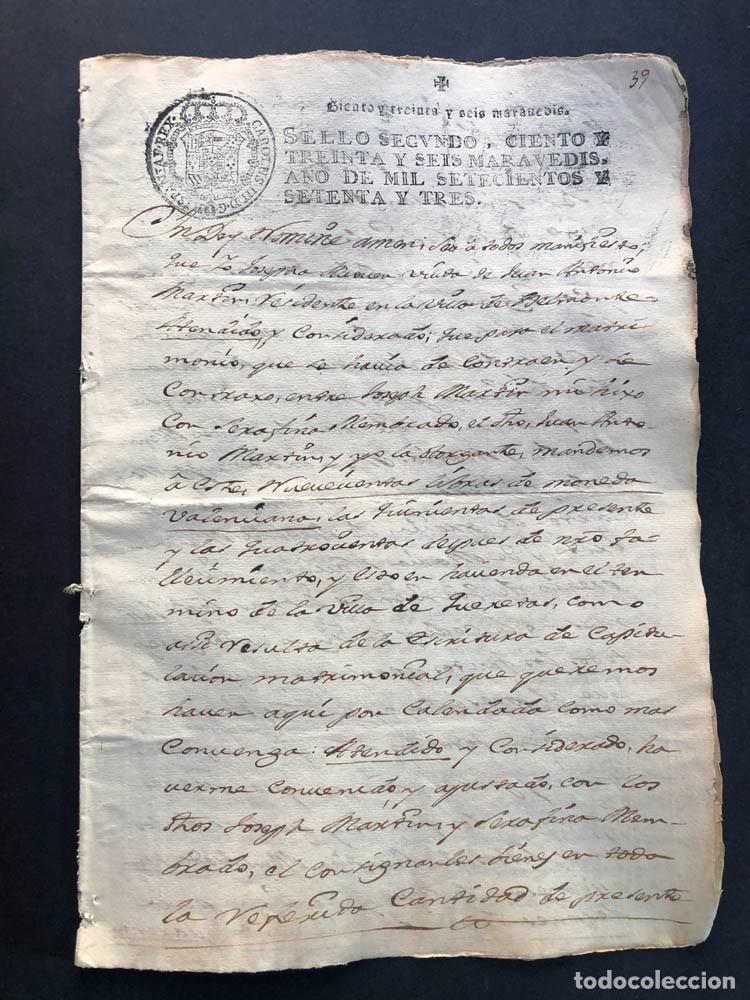 39
Ciento y treinta y seis maravedis.
CAROLUS III D.G. HISPANIAR. REX.
SELLO SEGVNDO, CIENTO Y
TREINTA Y SEIS MARAVEDIS,
AÑO DE MIL SETECIENTOS Y
SETENTA Y TRES.
In Dey Nomine amen: Sea â todos manifiesto,
que Yo Josepha viuda de Juan Antonio
Martin, Residente en la villa de
Atendido, y Considerado, que para el matri
monio, que se havia de Contraer, y se
Contraxo, entre Joseph Martin mi hixo
con Serafina Membrado, el dho, Juan Anto
nio Martin, y yo la otorgante, mandemos
â este, Nuevecientas libras de moneda
Valenciana, las quinientas de presente
y las quatrocientas despues de nro fa-
llecimiento, y esto en hacienda en el ter
mino de la villa de Queretas, como
assi resulta de la escritura de Capitu-
lacion matrimonial, que queremos
haver aqui por Calendada como mas
Convenga: Atendido y Considerado, ha
verme Convenido y ajustado, con los
dhos Joseph Martin, y Serafina Mem-
brado, el Consignarles bienes en toda
la referida Cantidad de presente
todocoleccion